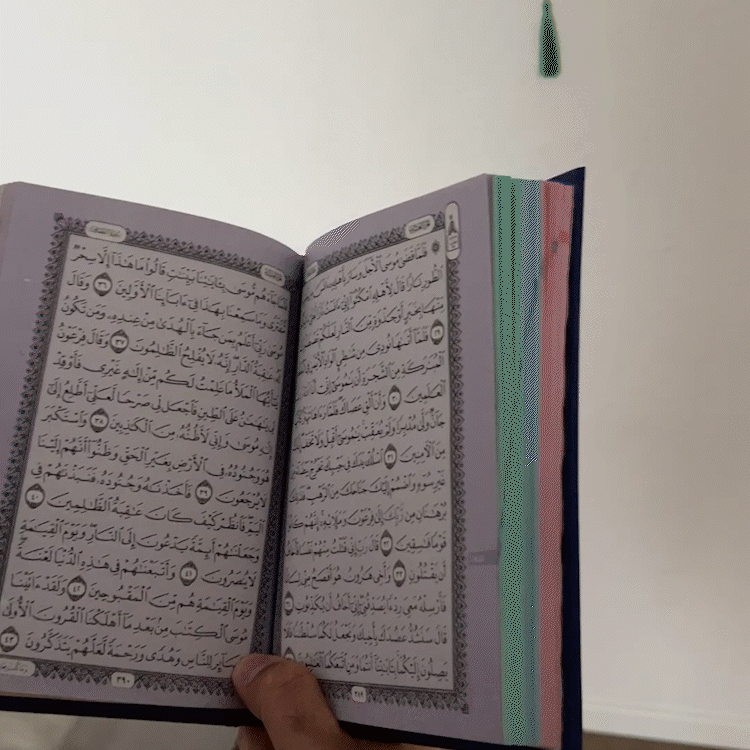 ۞ فَلَمَّا قَضَىٰ مُوسَى ٱلْأَجَلَ وَسَارَ بِأَهْلِهِۦٓ
ٱلطُّورِ نَارًا قَالَ لِأَهْلِهِ ٱمْكُثُوٓا۟ إِنِّىٓ
مِّنْهَا بِخَبَرٍ أَوْ جَذْوَةٍ مِّنَ ٱلنَّارِ لَعَلَّكُمْ تَصْطَلُونَ
٢٩ فَلَمَّآ أَتَىٰهَا نُودِىَ مِن شَٰطِئِ ٱلْوَادِ ٱلْأَيْمَنِ فِى
ٱلْمُبَٰرَكَةِ مِنَ ٱلشَّجَرَةِ أَن يَٰمُوسَىٰٓ إِنِّىٓ أَنَا ٱللَّهُ
ٱلْعَٰلَمِينَ ٣٠ وَأَنْ أَلْقِ عَصَاكَ فَلَمَّا رَءَاهَا تَهْتَزُّ
جَآنٌّ وَلَّىٰ مُدْبِرًا وَلَمْ يُعَقِّبْ يَٰمُوسَىٰٓ أَقْبِلْ وَلَا تَخَفْ
مِنَ ٱلْءَامِنِينَ ٣١ ٱسْلُكْ يَدَكَ فِى جَيْبِكَ تَخْرُجْ بَيْضَآءَ
غَيْرِ سُوٓءٍ وَٱضْمُمْ إِلَيْكَ جَنَاحَكَ مِنَ ٱلرَّهْبِ فَذَٰنِكَ
بُرْهَٰنَانِ مِن رَّبِّكَ إِلَىٰ فِرْعَوْنَ وَمَلَإِي۟هِۦٓ إِنَّهُمْ كَانُوا۟
قَوْمًا فَٰسِقِينَ ٣٢ قَالَ رَبِّ إِنِّى قَتَلْتُ مِنْهُمْ نَفْسًا فَأَخَافُ
أَن يَقْتُلُونِ ٣٣ وَأَخِى هَٰرُونُ هُوَ أَفْصَحُ مِنِّى لِسَانًا
فَأَرْسِلْهُ مَعِىَ رِدْءًا يُصَدِّقُنِىٓ إِنِّىٓ أَخَافُ أَن يُكَذِّبُونِ ٣٤
قَالَ سَنَشُدُّ عَضُدَكَ بِأَخِيكَ وَنَجْعَلُ لَكُمَا سُلْطَٰنًا فَلَا
يَصِلُونَ إِلَيْكُمَا بِـَٔايَٰتِنَآ أَنتُمَا وَمَنِ ٱتَّبَعَكُمَا ٱلْغَٰلِبُونَ ٣٥
٣٨٩
فَلَمَّا جَآءَهُم مُّوسَىٰ بِـَٔايَٰتِنَا بَيِّنَٰتٍ قَالُوا۟ مَا هَٰذَآ إِلَّا سِحْرٌ
مُّفْتَرًى وَمَا سَمِعْنَا بِهَٰذَا فِىٓ ءَابَآئِنَا ٱلْأَوَّلِينَ ٣٦ وَقَالَ
مُوسَىٰ رَبِّىٓ أَعْلَمُ بِمَن جَآءَ بِٱلْهُدَىٰ مِنْ عِندِهِۦ وَمَن تَكُونُ
لَهُۥ عَٰقِبَةُ ٱلدَّارِ إِنَّهُۥ لَا يُفْلِحُ ٱلظَّٰلِمُونَ ٣٧ وَقَالَ فِرْعَوْنُ
يَٰٓأَيُّهَا ٱلْمَلَأُ مَا عَلِمْتُ لَكُم مِّنْ إِلَٰهٍ غَيْرِى فَأَوْقِدْ
لِى يَٰهَٰمَٰنُ عَلَى ٱلطِّينِ فَٱجْعَل لِّى صَرْحًا لَّعَلِّىٓ أَطَّلِعُ إِلَىٰٓ
إِلَٰهِ مُوسَىٰ وَإِنِّى لَأَظُنُّهُۥ مِنَ ٱلْكَٰذِبِينَ ٣٨ وَٱسْتَكْبَرَ
هُوَ وَجُنُودُهُۥ فِى ٱلْأَرْضِ بِغَيْرِ ٱلْحَقِّ وَظَنُّوٓا۟ أَنَّهُمْ إِلَيْنَا
لَا يُرْجَعُونَ ٣٩ فَأَخَذْنَٰهُ وَجُنُودَهُۥ فَنَبَذْنَٰهُمْ فِى
ٱلْيَمِّ فَٱنظُرْ كَيْفَ كَانَ عَٰقِبَةُ ٱلظَّٰلِمِينَ ٤٠
وَجَعَلْنَٰهُمْ أَئِمَّةً يَدْعُونَ إِلَى ٱلنَّارِ وَيَوْمَ ٱلْقِيَٰمَةِ
لَا يُنصَرُونَ ٤١ وَأَتْبَعْنَٰهُمْ فِى هَٰذِهِ ٱلدُّنْيَا لَعْنَةً
وَيَوْمَ ٱلْقِيَٰمَةِ هُم مِّنَ ٱلْمَقْبُوحِينَ ٤٢ وَلَقَدْ ءَاتَيْنَا
مُوسَى ٱلْكِتَٰبَ مِنۢ بَعْدِ مَآ أَهْلَكْنَا ٱلْقُرُونَ ٱلْأُولَىٰ
بَصَآئِرَ لِلنَّاسِ وَهُدًى وَرَحْمَةً لَّعَلَّهُمْ يَتَذَكَّرُونَ ٤٣
٣٩٠